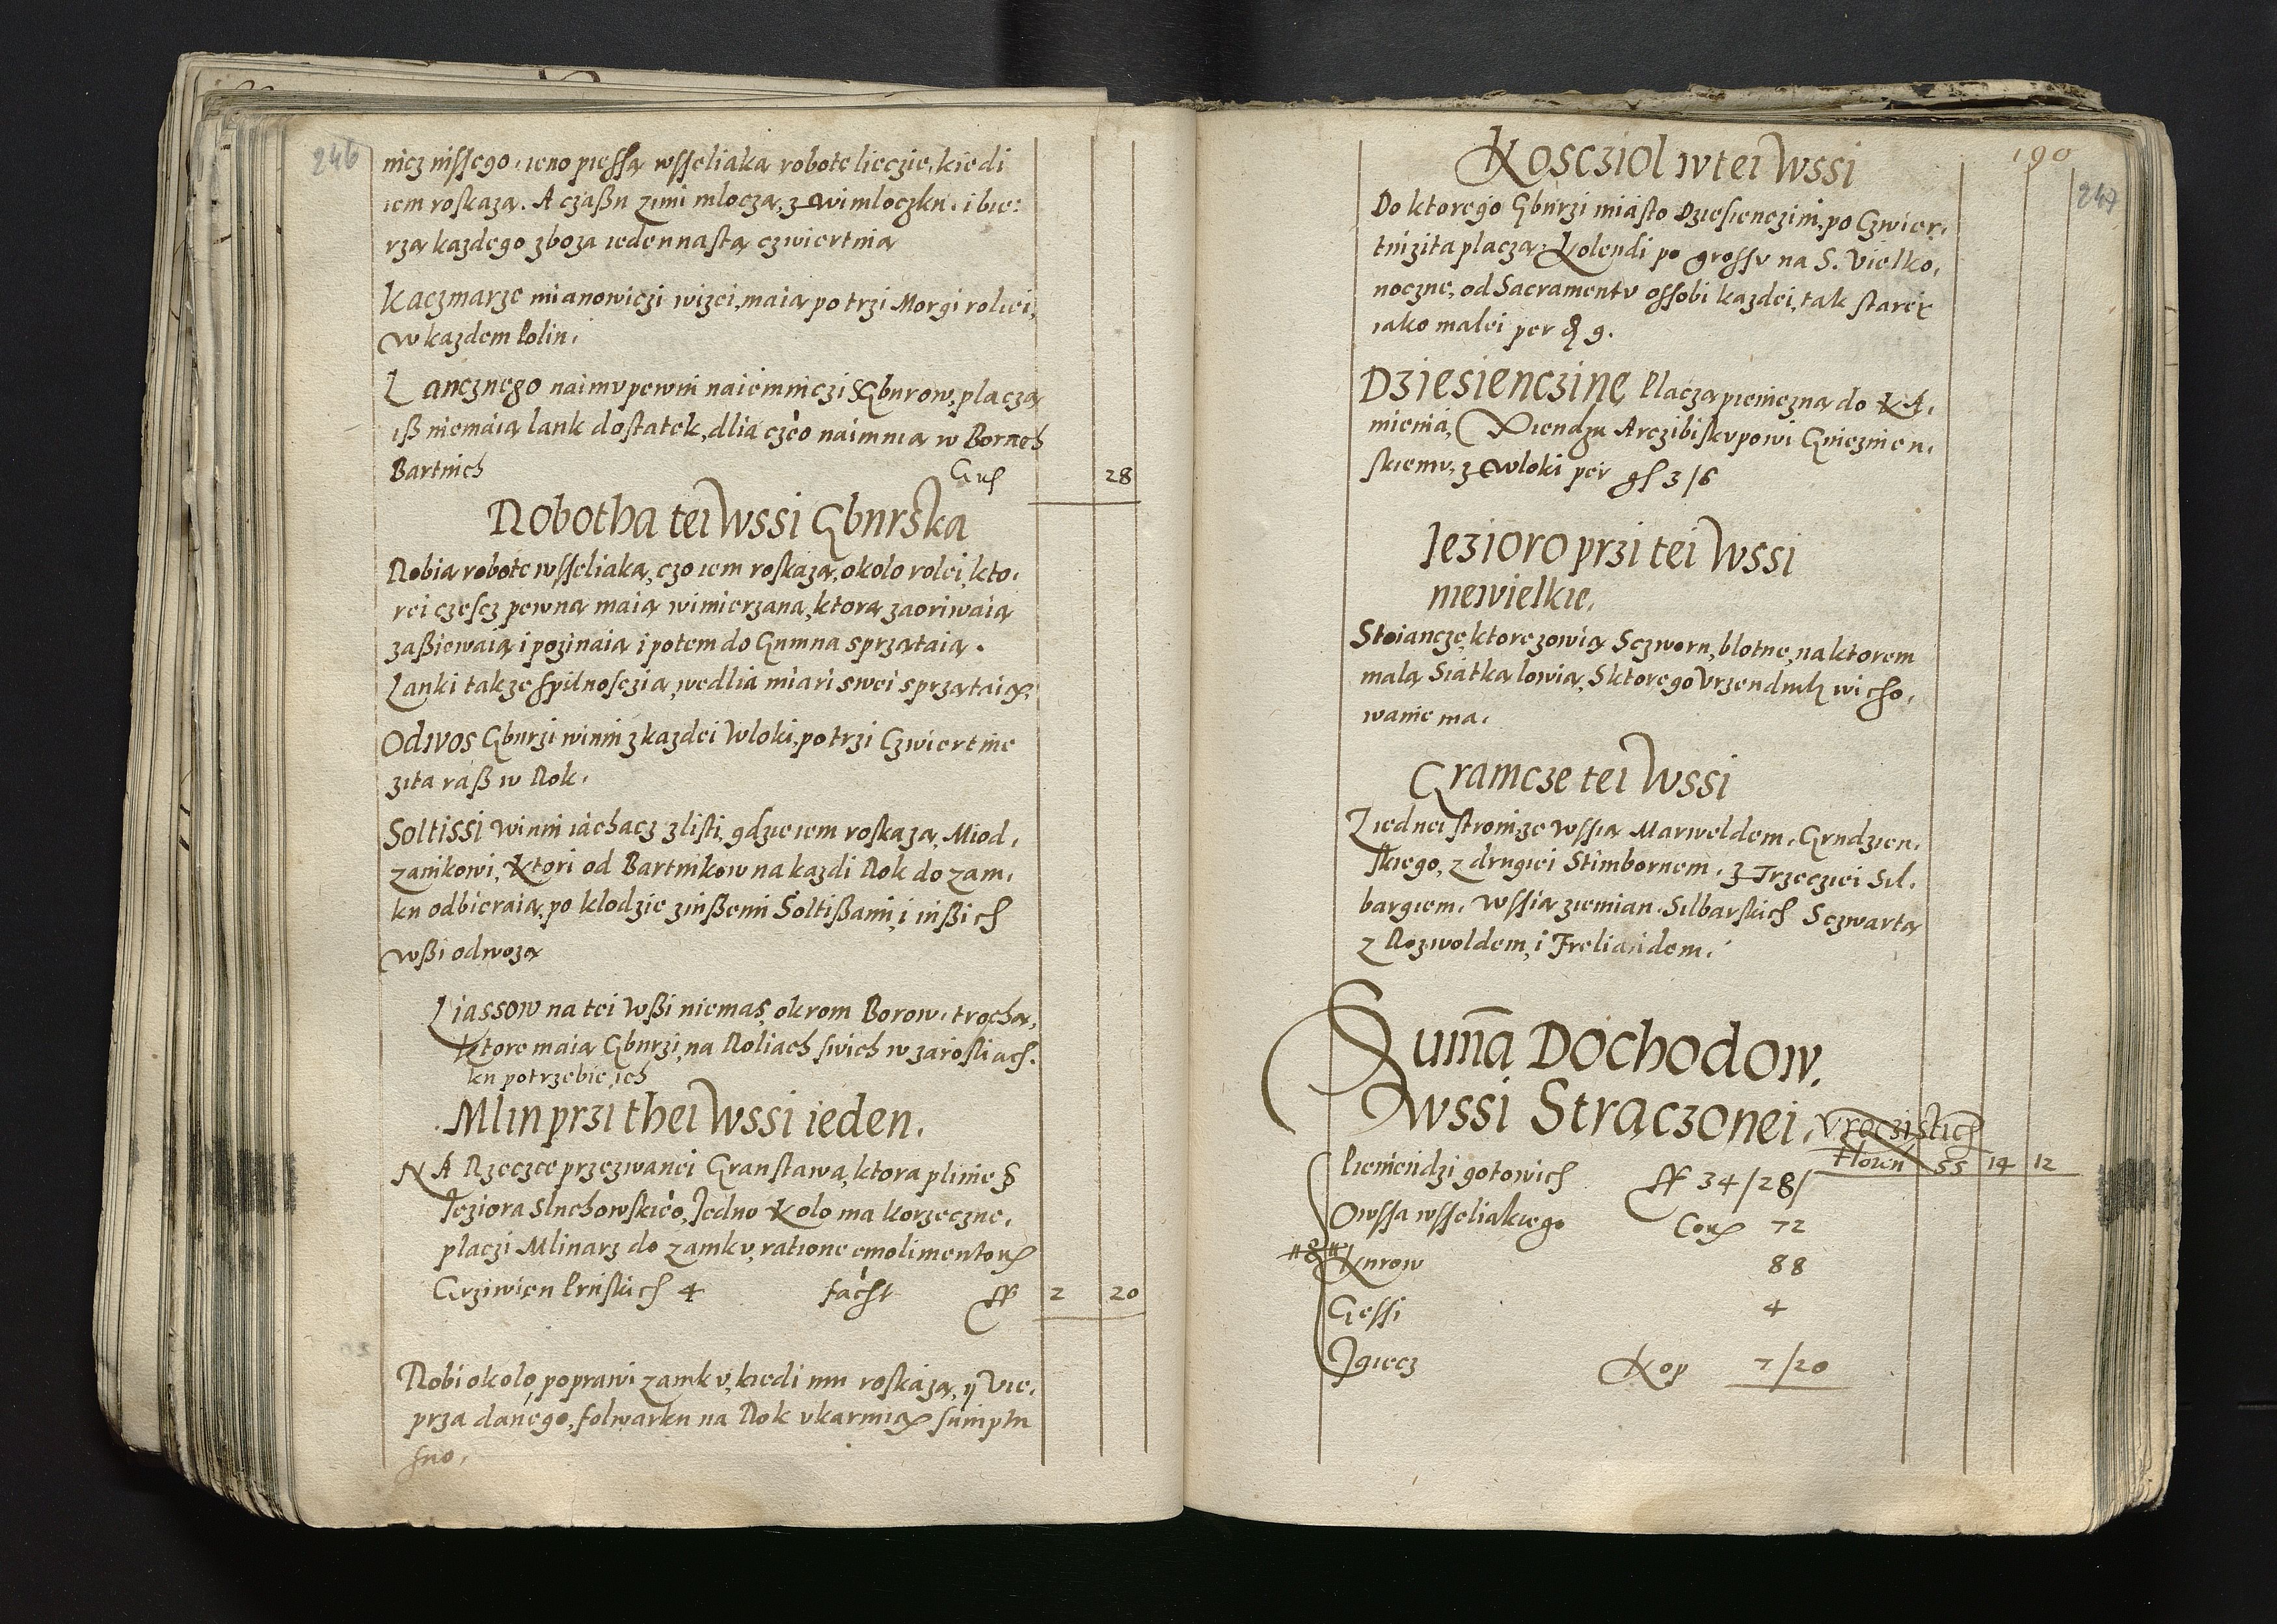 246
nicz inssego, ieno piessą wsseliaką robote lieczie, kiedi
iem roskazą. A czaßu zimi mloczą, z wimloczku, i bie:
rzą kazdego zboza iedennastą czwiertnią
Kaczmarze mianowiczi wizei, maią po trzi Morgi roliei,
w kazdem Polin.
Lancznego naimu pewni naiemniczi S Gburow, placzą
iß niemaią lank dostatek, dlia czeo naimuią w Borach
Bartnich Gr 28
Robotha tei Wssi Gburska
Robią robote wsseliaką, czo iem roskazą, okolo rolei, kto,
rei czescz pewną maią wimierzaną, ktorą zaoriwaią
zaßiewaią i pozinaią i potem do Gumna sprzątaią.
Lanki takze spilnosczią, wedlia miari swei sprzątaią.
Odwos Gburzi winni z kazdei Wloki, po trzi Czwiertnie
zita raß w Rok.
Soltissi winni iachacz z listi, gdzie iem roskazą, Miod,
zamkowi, Ktori od Bartnikow na kazdi Rok do zam,
ku odbieraią, po klodzie z inßemi Soltißami, i inßich
wßi odwozą
Liassow na tei Wßi niemas, okrom Borow, trochą,
ktore maią Gburzi, na Roliach swich w zarosliach.
ku potrzebie ich
Mlin przi thei Wssi ieden.
NA Rzecze przezwanei Granstawa, ktora plinie S
Jeziora Sluchowskieo, Jedno Kolo ma korzeczne,
placzi Mlinarz do zamku, ratione emolimentorum
Grziwien Pruskich 4 facht ff 2 20
Robi okolo, poprawi zamku, kiedi mu roskazą, y Vie,
prza danego, folwarku na Rok ukarmią sumptu
suo.
190
247
Kosczιol w tei Wssi
Do ktorego Gburzi miasto Dziesienczini, po Czwier,
tni zita placzą, Kolendi po grossu na S. Vielko,
noczne, od Sacramentu ossobi kazdei, tak starei
iako malei per ₰ 9.
Dziesienczine Placzą pieniezną do KA,
mienia, Xiendzu Arczibiskupowi Gnieznien,
skiemu, z Wloki per gs 3/6
Jezioro przi tei Wssi
niewielkie.
Stoiancze, ktore zowią Sczworn, blotne, na ktorem
malą Siatką lowią, S ktorego Urzendnik wicho,
wanie ma.
Gramcze tei Wssi
Z iednei stroni ze Wssią Marweldem, Grudzien,
skiego, z drugiei Stimbornem, z Trzecziei Sil,
bargiem, Wssią ziemian Silbarskich Sczwartą
z Rozwoldem, i Freliandem.
Summa Dochodow,
Wssi Straczonei, Uroczistich
floren 55 14 12
Pieniendzi gotowich ff 34/28/
Owssa wsseliakiego Cor 72
Kurow 88
Gessi 4
Jaiecz Kop 7/20